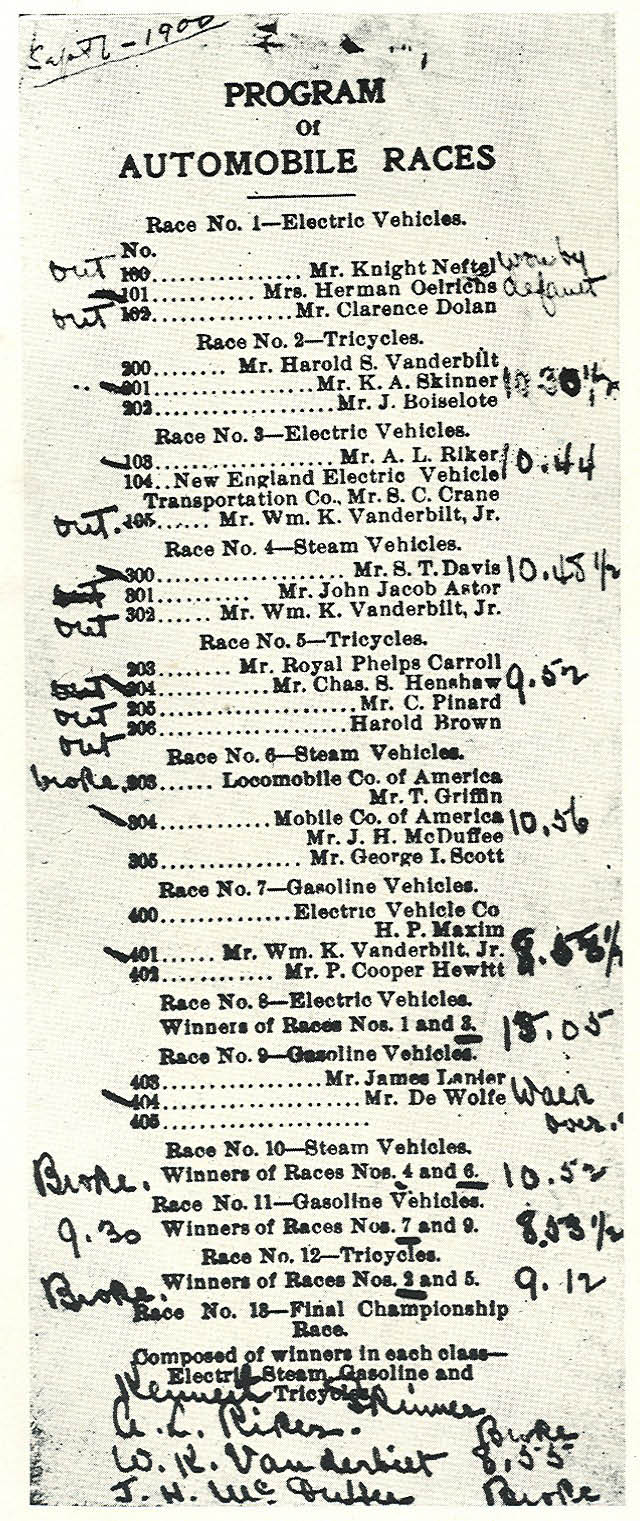 Sept 6 - 1900
PROGRAM
Of
AUTOMOBILE RACES
Race No. 1—Electric Vehicles.
No.
out 100.................. Mr. Knight Neftel won by
101............ Mrs. Herman Oelrichs default
out 102................ Mr. Clarence Dolan
Race No. 2—Tricycles.
200........ Mr. Harold S. Vanderbilt
201..................Mr. K. A. Skinner 10 30 1/2
202.....................Mr. J. Boiselote
Race No. 3—Electric Vehicles.
103......................Mr. A. L. Riker 10.44
104..New England Electric Vehicle
Transportation Co., Mr. S. C. Crane
out. 105...... Mr. Wm. K. Vanderbilt, Jr.
Race No. 4—Steam Vehicles.
300......................Mr. S. T. Davis 10.45 1/2
301.......... Mr. John Jacob Astor
out 302...... Mr. Wm. K. Vanderbilt, Jr.
Race No. 5—Tricycles.
203........ Mr. Royal Phelps Carroll
204............Mr. Chas. S. Henshaw 9.52
out 205......................Mr. C. Pinard
out 206.....................Harold Brown
Race No. 6—Steam Vehicles.
broke. 303...... Locomobile Co. of America
Mr. T. Griffin
304............Mobile Co. of America 10.56
Mr. J. H. McDuffee
305................ Mr. George I. Scott
Race No. 7—Gasoline Vehicles.
400...............Electric Vehicle Co
H. P. Maxim
401...... Mr. Wm. K. Vanderbilt. Jr. 8.53 1/2
402............ Mr. P. Cooper Hewitt
Race No. 8—Electric Vehicles.
Winners of Races Nos. 1 and 3. 15.05
Race No. 9—Gasoline Vehicles.
403....................Mr. James Lanier
404......................Mr. De Wolfe Walk
405......................... over.
Race No. 10—Steam Vehicles.
Broke. Winners of Races Nos. 4 and 6. 10.52
Race No. 11—Gasoline Vehicles.
9.30 Winners of Races Nos. 7 and 9. 8.53 1/2
Race No. 12—Tricycles.
Broke. Winners of Races Nos. 2 and 5. 9.12
Race No. 13—Final Championship
Race.
Composed of winners in each class—
Electric, Steam, Gasoline and
Tricycles.
Kenneth Skinner
A. L. Riker. Broke
W. K. Vanderbilt 8.55
J. H. McDuffee Broke